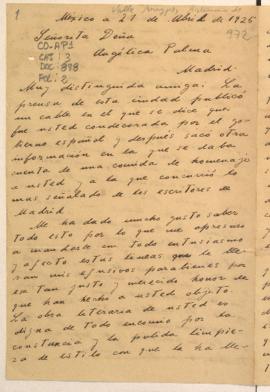 1
México a 21 de Abril de 1926
972
Señorita Doña
CD-AP1
CAJ : 3
DOC : 898
FOL : 2
Angélica Palma
Madrid
Muy distinguida amiga: La
prensa de esta ciudad publicó
un cable en el que se dice que
fue usted condecorada por el go-
bierno español y después sacó otra
información en la que se daba
cuenta de una comida de homenaje
a usted y a la que concurrió lo
mas señalado de los escritores de
Madrid
Me ha dado mucho gusto saber
todo esto por lo que me apresuro
a mandarle con todo entusiasmo
y afecto estas líneas que le lle-
van mis efusivos parabienes por
ese tan justo y merecido honor de
que han hecho a usted objeto.
La obra literaria de usted es
digna de todo encomio por la
constancia y la pulida limpie-
za de estilo con que la ha lle-